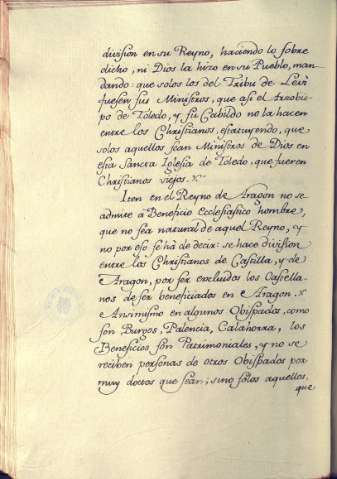 division en su Reyno, haciendo lo sobre
dicho, ni Dios la hizo en su Pueblo, man-
dando que solos los del Tribu de Levi
fuesen sus Ministros, que asi el Arzobis-
po de Toledo, y su Cabildo no la hacen
entre los Christianos, estatuyendo, que
solos aquellos sean Ministros de Dios en
esta Sancta Iglesia de Toledo que fueren
Christianos viejos.
Iten en el Reyno de Aragon no se
admite a Beneficio Ecclesiastico hombre,
que no sea natural de aquel Reyno, y
no por eso se há de decir: se hace division
entre los Christianos de Castilla, y de
Aragon, por ser excluidos los Castella-
nos de ser beneficiados en Aragon.
e Ansimismo en algunos Obispados, como
son Burgos, Palencia, Calahorra, los
Beneficios son Patrimoniales, y no se
reciben personas de otros Obispados por
muy doctos que sean; sino solos aquellos
que